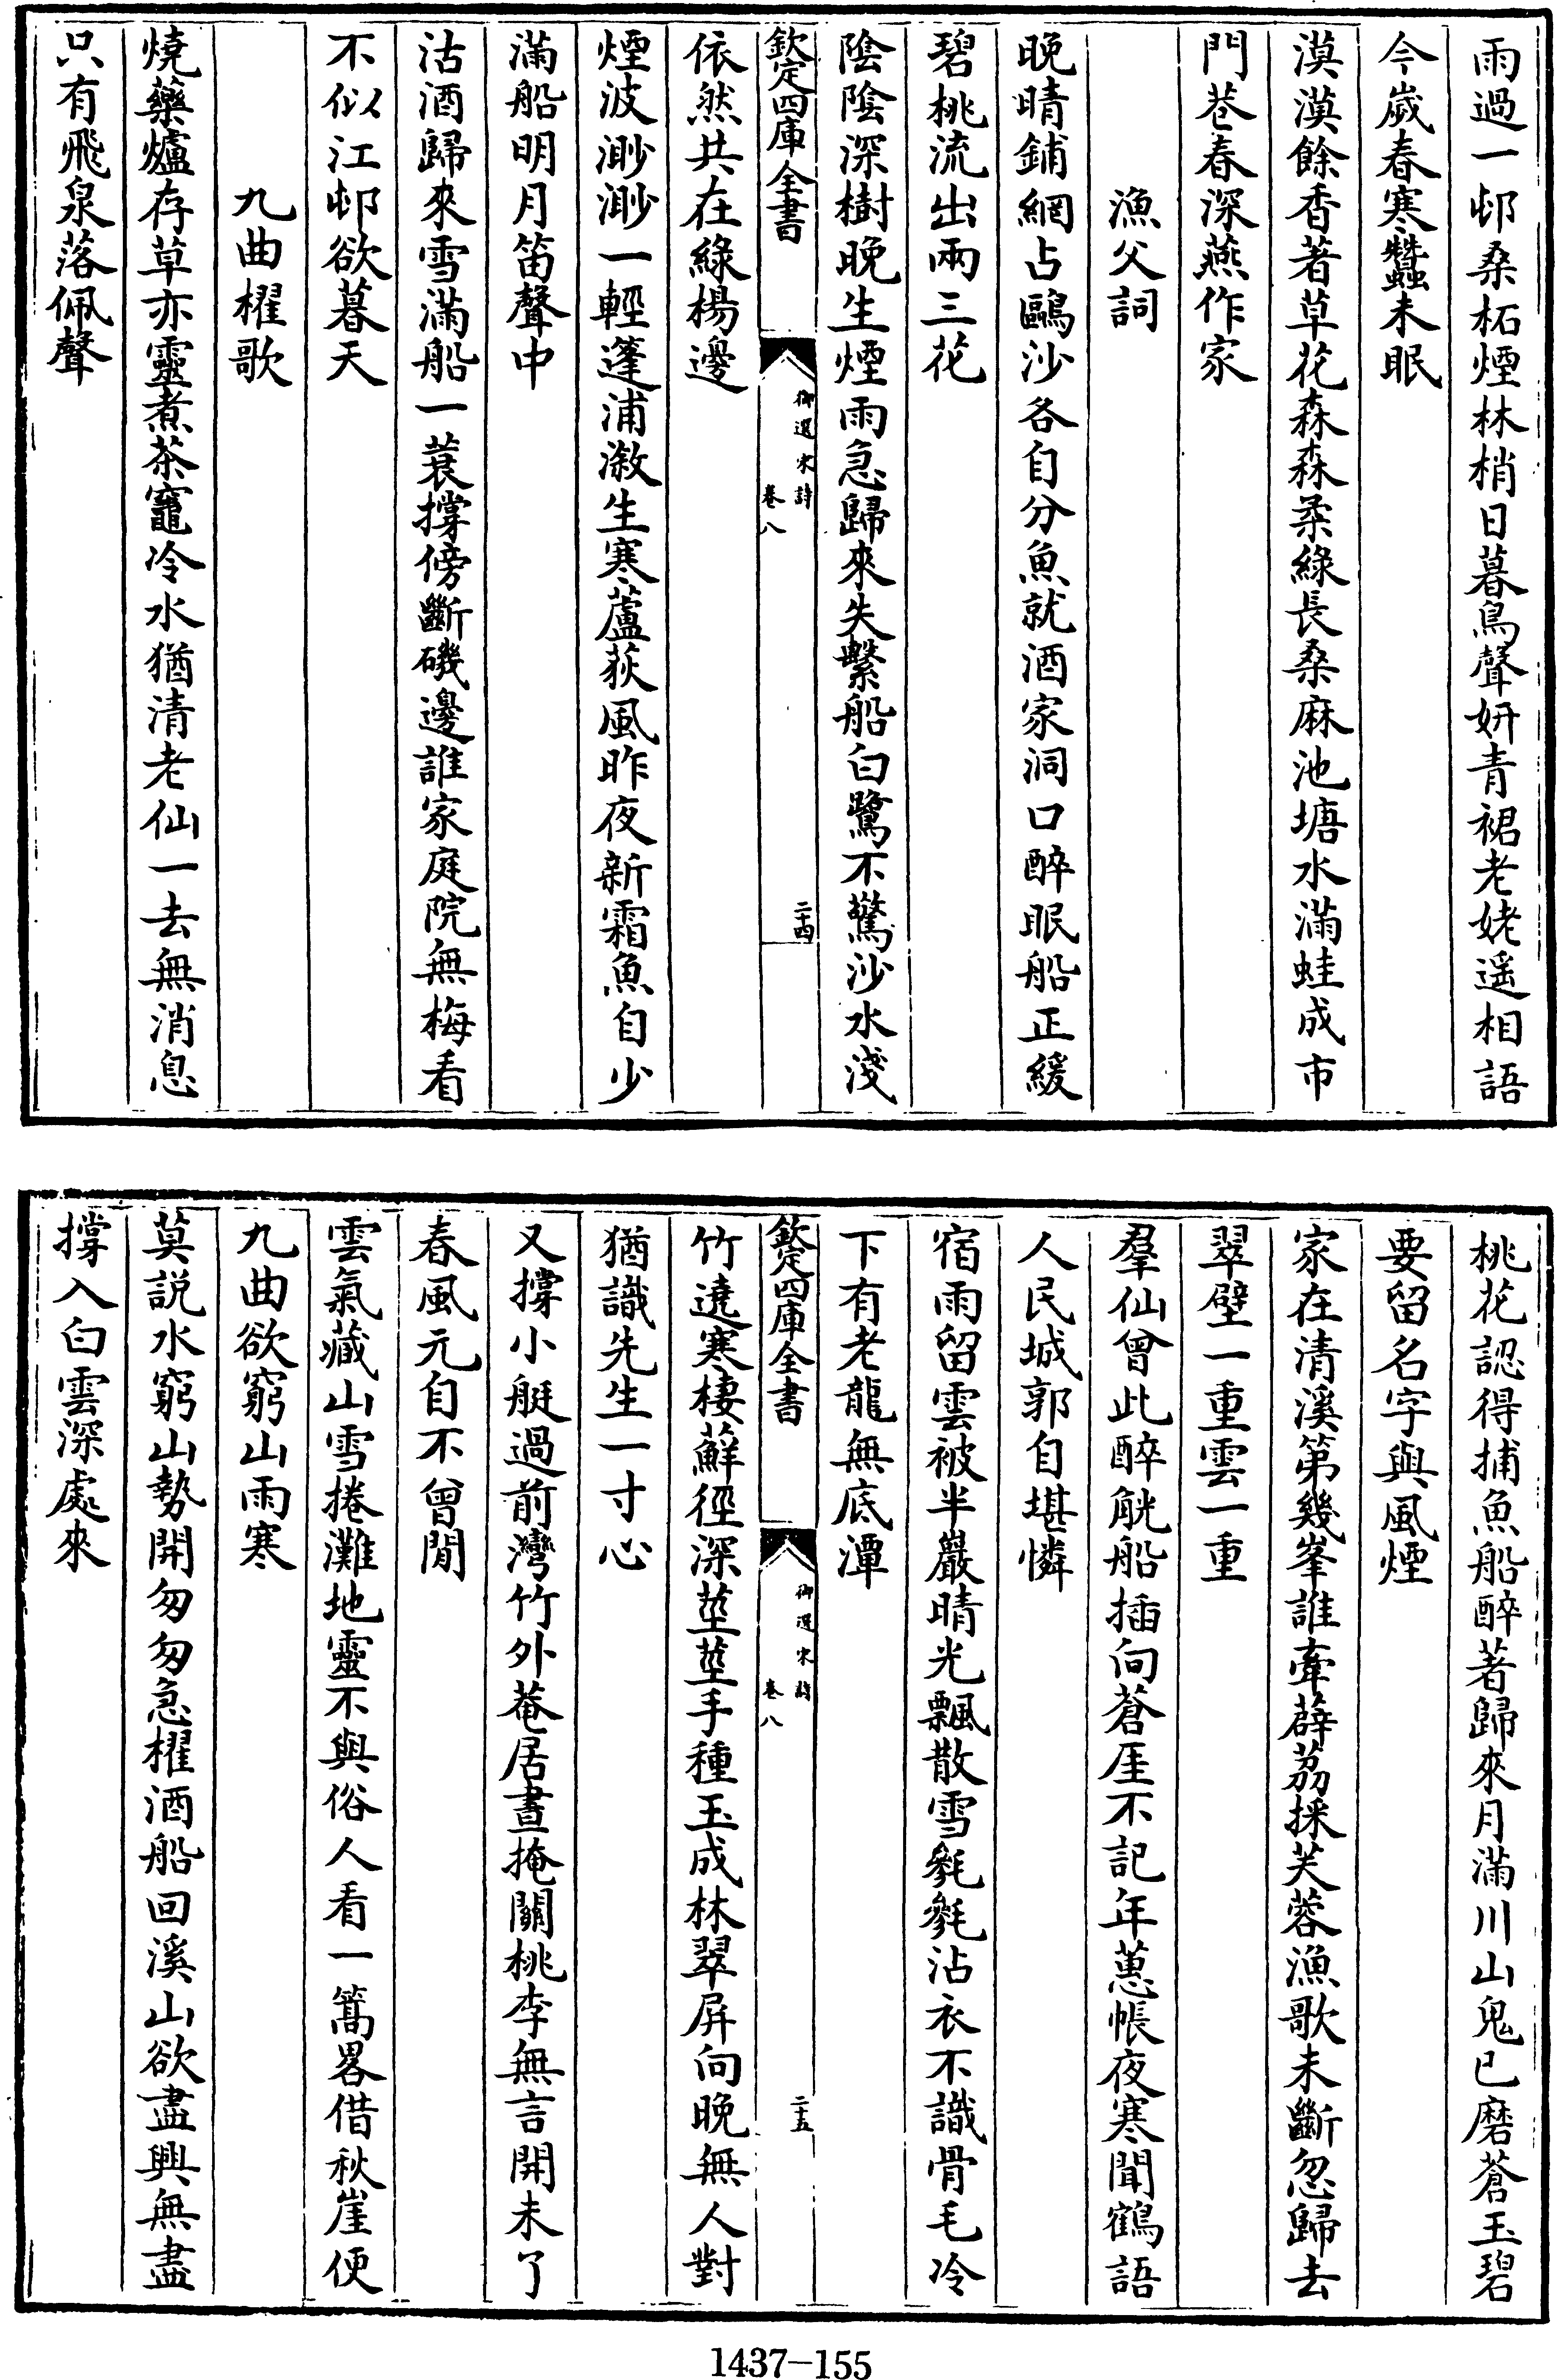 雨過一邨桑柘煙林梢日暮鳥聲妍青裙老姥遥相語
今歲春寒蠶未眠
漠漠餘香著草花森森柔綠長桑麻池塘水滿蛙成市
門巷春深燕作家
漁父詞
晚晴鋪網占鷗沙各自分魚就酒家洞口醉眠船正緩
碧桃流出兩三花
陰陰深樹晚生煙雨急歸來失繫船白鷺不驚沙水淺
欽定四庫全書
御選宋詩
卷八
二十四
依然共在綠楊邊
煙波渺渺一輕篷浦漵生寒蘆荻風昨夜新霜魚自少
滿船明月笛聲中
沽酒歸來雪滿船一蓑撐傍斷磯邊誰家庭院無梅看
不似江邨欲暮天
九曲櫂歌
燒藥爐存草亦靈煮茶竈冷水猶清老仙一去無消息
只有飛泉落佩聲
桃花認得捕魚船醉著歸來月滿川山鬼已磨蒼玉碧
要留名字與風煙
家在清溪第幾峯誰牽薜荔採芙蓉漁歌未斷忽歸去
翠壁一重雲一重
羣仙曾此醉觥船插向蒼厓不記年蕙帳夜寒聞鶴語
人民城郭自堪憐
宿雨留雲被半巖晴光飄散雪毿毿沾衣不識骨毛冷
下有老龍無底潭
欽定四庫全書
御選宋詩
卷八
二十五
竹遶寒棲蘚徑深莖莖手種玉成林翠屏向晚無人對
猶識先生一寸心
又撐小艇過前灣竹外菴居晝掩關桃李無言開未了
春風元自不曾閒
雲氣藏山雪捲灘地靈不與俗人看一篙畧借秋崖便
九曲欲窮山雨寒
莫説水窮山勢開匆匆急櫂酒船回溪山欲盡興無盡
撐入白雲深處來
1437-155